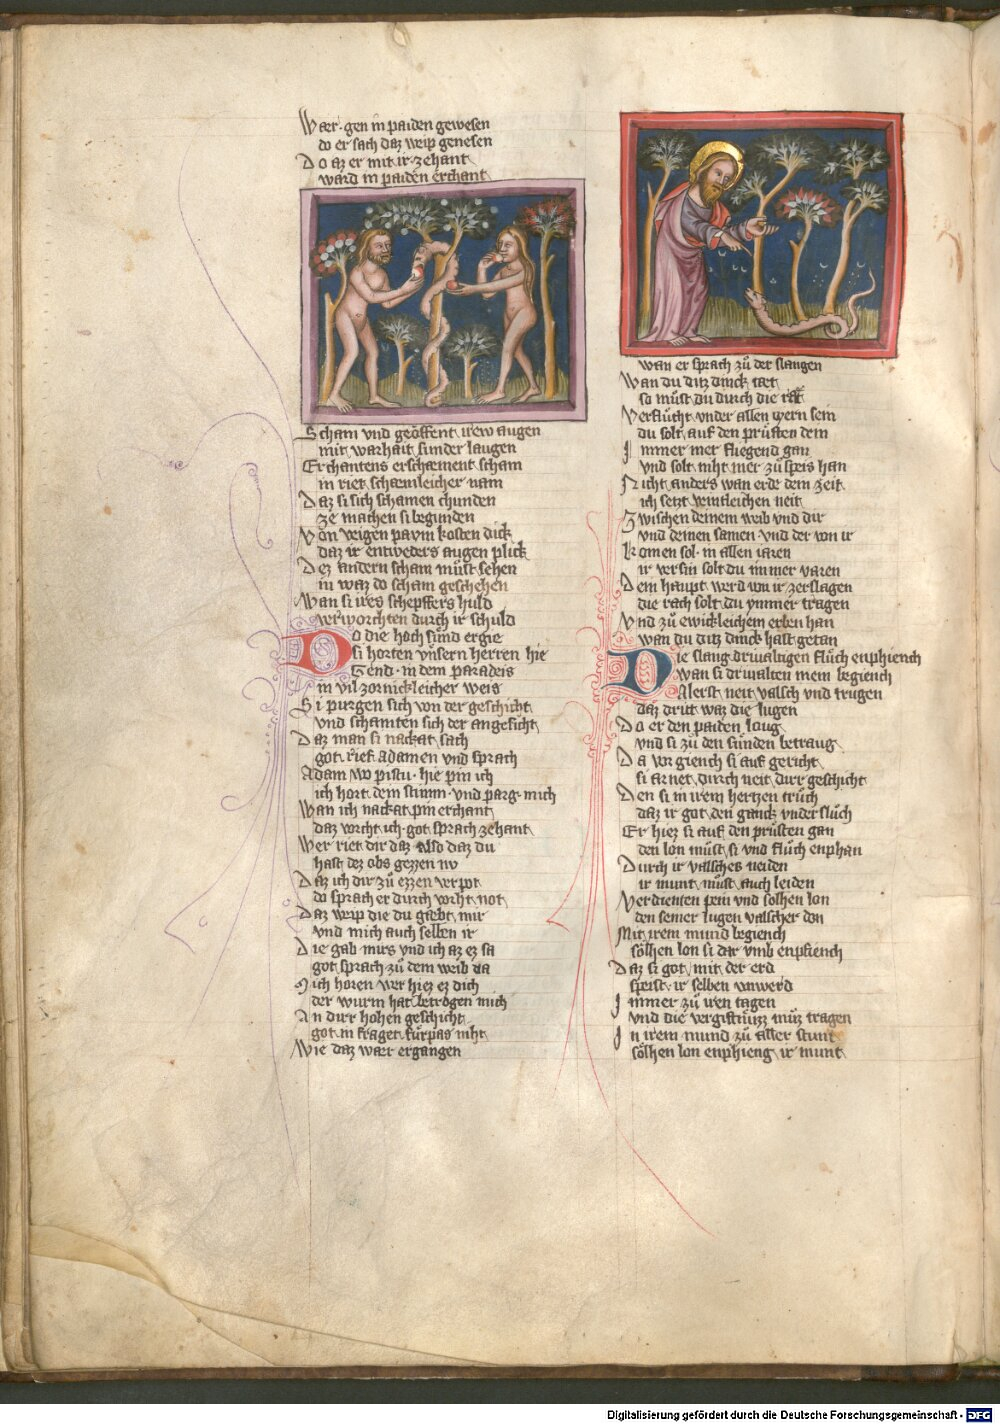 Wær gen in paiden gewesen
do er sach daz weip genesen
Do az er mit ir zehant
ward in paiden erchant
Scham vnd geöffent irew augen
mit warhait sunder laugen
Erchantens erschæment scham
in riet schæmleicher nam
Daz si sich schamen chunden
ze machen si begunden
Von veigen pavm kosten dick
daz ir entweders augen plick
Dez andern scham müst sehen
in waz do scham geschehen
Wan si ires schepffers huld
verworchten durch ir schuld
Do die hoch sünd ergie
si horten vnsern herren hie
Gend in dem paradeis
in vil zornickleicher weis
Si purgen sich von der geschicht
vnd schamten sich der angesicht
Daz man si nackat sach
got rief adamen vnd sprach
Adam wo pistu hie pin ich
ich hort dem stimm vnd parg mich
Wan ich nackat pin erchant
daz vorcht ich got sprach zehant
Wer riet dir daz also daz du
hast dez obs gezzen nv
Daz ich dir zů ezzen verpot
do sprach er durch wiht not
Daz weip die du gæbt mir
vnd mich auch selben ir
Die gab mirs vnd ich az ez sa
got sprach zů dem weib da
Mich horen wer hiez ez dich
der wurm hat betrogen mich
An dirr hohen geschicht
got in fraget fürpas niht
Wie daz wær ergangen
wan er sprach zů der slangen
Wan du ditz dinck tæt
so müst du durch die ræt
Verflücht vnder allen tyern sein
du solt auf den prüsten dein
Immer mer fliegend gan
vnd solt niht mer zů speis han
Nicht anders wan erde dem zeit
ich setzt veintleichen neit
Zwischen deinem weib vnd dir
vnd deinen samen vnd der von ir
Komen sol in allen iaren
ir versin solt du immer varen
Dein haupt werd von ir zerslagen
die rach solt du ymmer tragen
Vnd zů ewickleichem erben han
wan du ditz dinck hast getan
Die slang drivaltigen flůch enphiench
wan si drivalten mein begiench
Alerst neit valsch vnd trugen
daz dritt waz die lugen
Do er den paiden loug
vnd si zů den sünden betraug
Da vor giench si auf gericht
si ar net durch neit dirr geschicht
Den si in irem hertzen trůch
daz ir got den ganck vnder slůch
Er hiez si auf den prüsten gan
den lon müst si vnd flůch enphan
Durch ir valsches neiden
ir munt müst auch leiden
Verdienten pein vnd solhen lon
den seiner lugen valscher don
Mit irem mund begiench
sölhen lon si dar vmb enpfiench
Daz si got mit der erd
speist ir selben vnwerd
Immer zů iren tagen
vnd die vergiftnüzz müz tragen
In irem mund zů aller stunt
sölhen lon enphieng ir munt
Digitalisierung gefördert durch die Deutsche Forschungsgemeinschaft - DFG